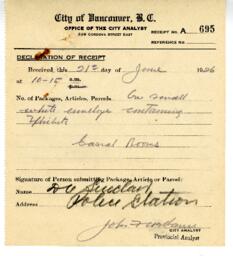 City of Vancouver, B. C.
OFFICE OF THE CITY ANALYST
240 CORDOVA STREET EAST
RECEIPT NO. A 695
REFERENCE NO.
DECLARATION OF RECEIPT
Received this 21st day of June 1926
at 10-15 a.m.
No. of Packages, Articles, Parcels. One small
white envelope containing
Exhibits
Casual Rooms
Signature of Person submitting Package, Article or Parcel:
Name D Sinclair
Address Police Station
John F
CITY ANALYST
Provincial Analyst